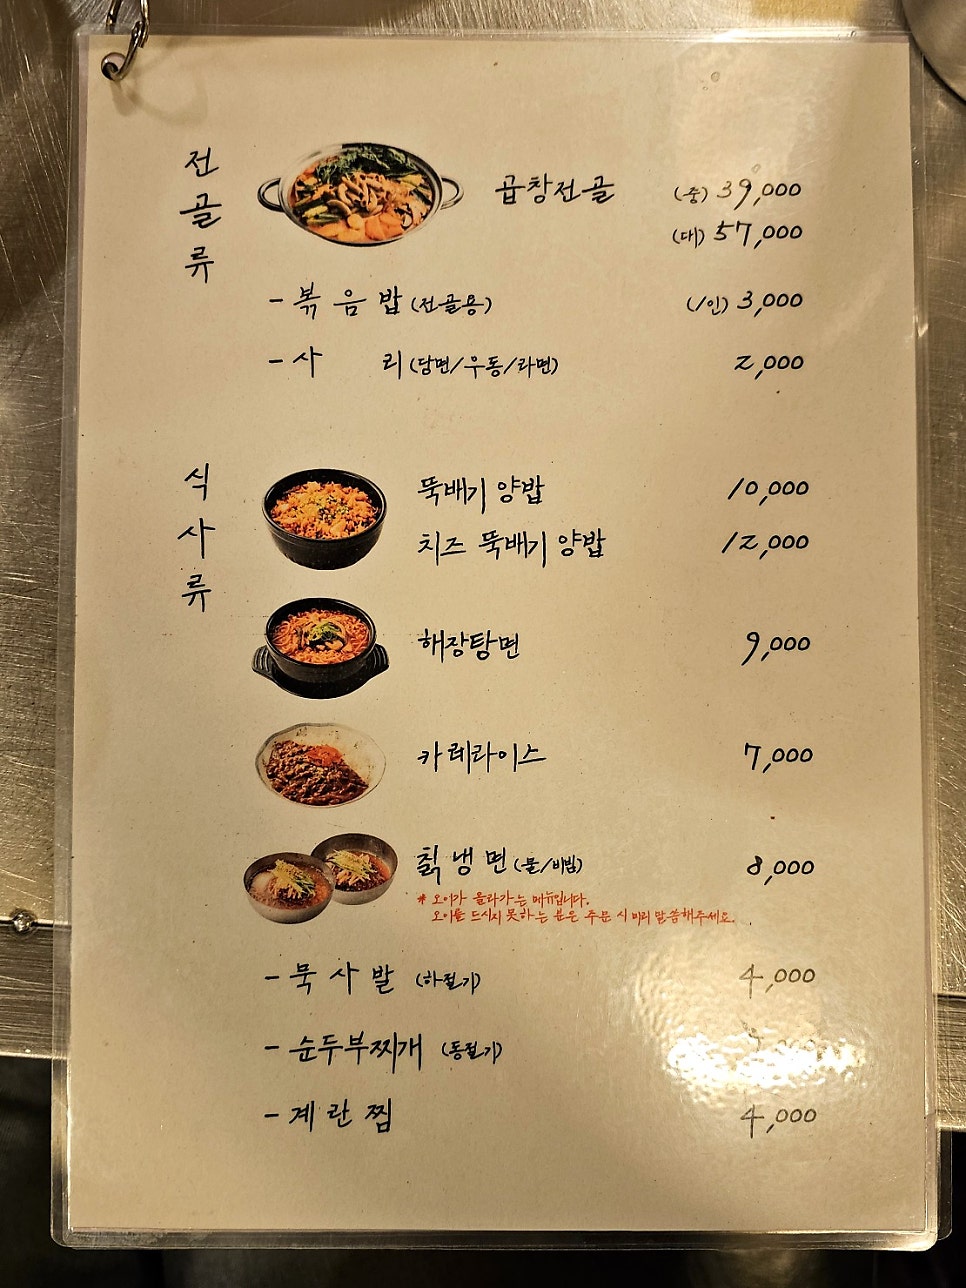 전골류
곱창전골 (중) 39,000
(대) 57,000
- 볶음밥 (전골용) (1인) 3,000
- 사리 (당면/우동/라면) 2,000
식사류
뚝배기 양밥 10,000
치즈 뚝배기 양밥 12,000
해장탕면 9,000
카레라이스 7,000
칡냉면 (물/비빔) 8,000
* 오이가 올라가는 메뉴입니다.
오이를 드시지 못하는 분은 주문 시 미리 말씀해주세요.
- 묵사발 (하절기) 4,000
- 순두부찌개 (동절기)
- 계란찜 4,000